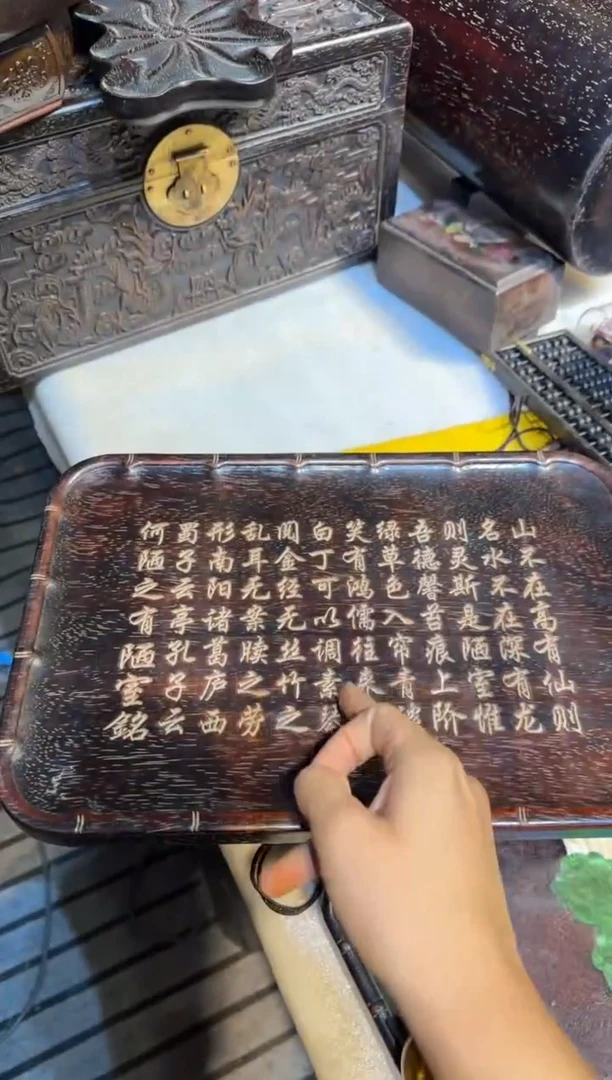 山不在高有仙则
名水不在深有龙
则灵斯是陋室惟
吾德馨苔痕上阶
绿草色入帘青
笑有鸿儒往来
白丁可以调素琴
阅金经无丝竹之
乱耳无案牍之劳
形南阳诸葛庐西
蜀子云亭孔子云
何陋之有陋室銘